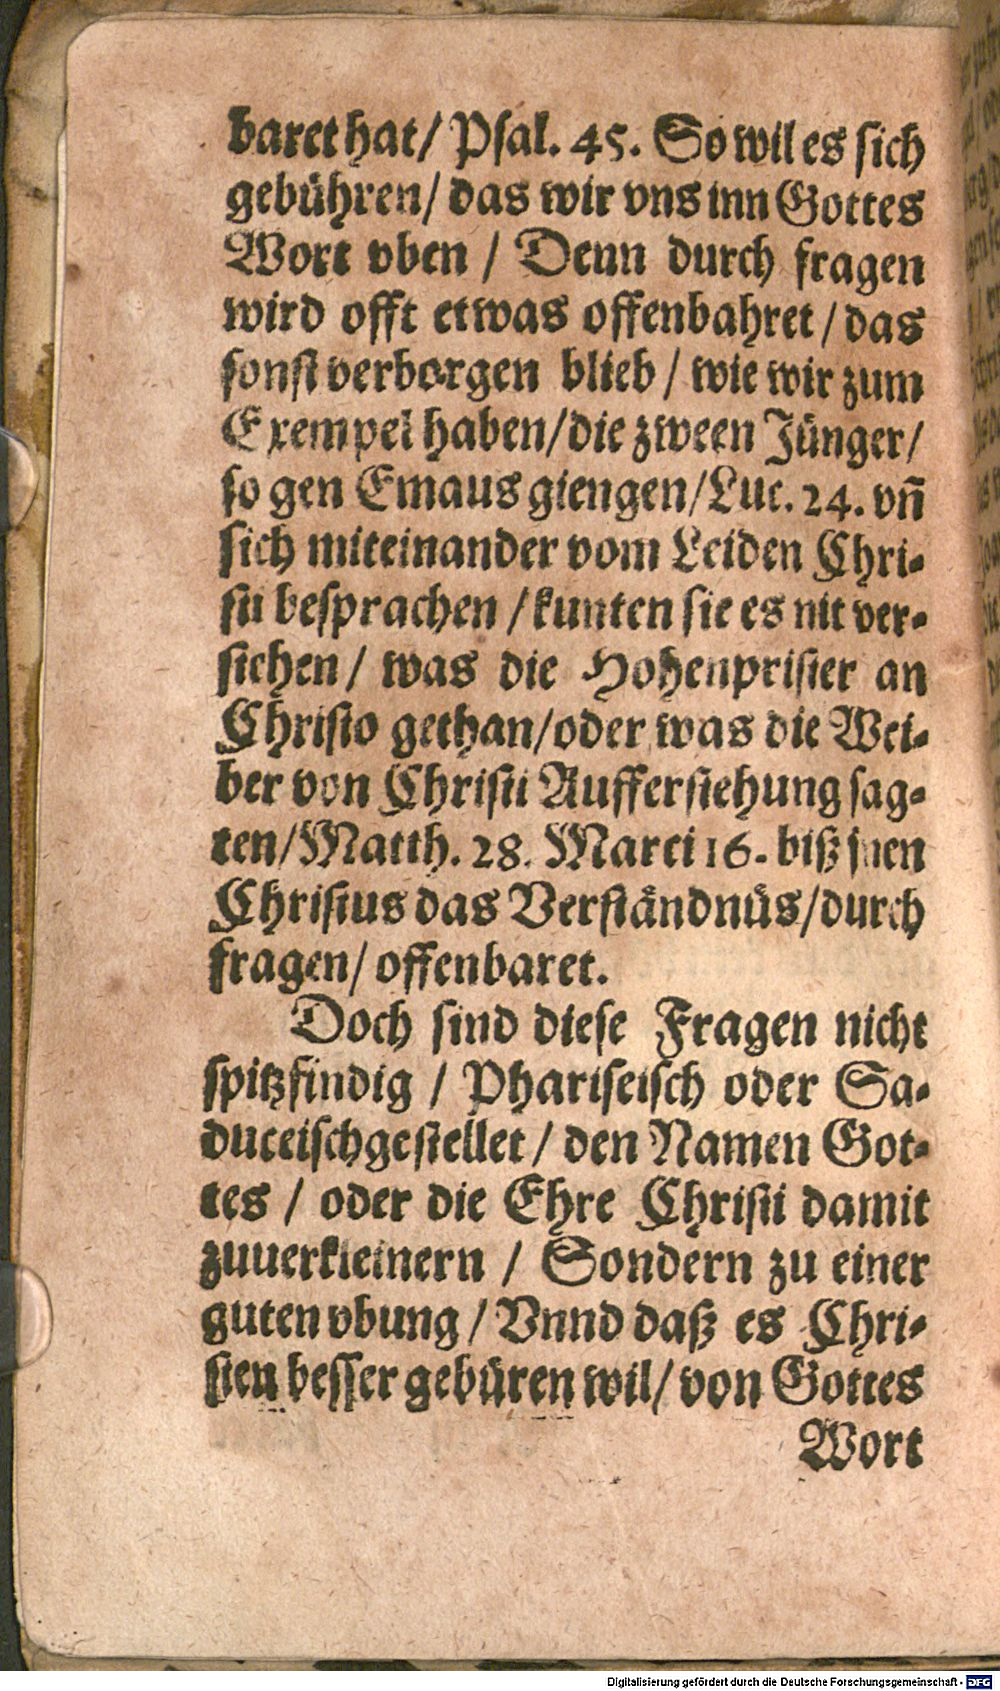 baret hat/ Psal. 45. So wil es sich
gebühren/ das wir vns inn Gottes
Wort vben / Denn durch fragen
wird offt etwas offenbahret / das
sonst verborgen blieb / wie wir zum
Exempel haben/die zween Jünger/
so gen Emaus giengen/Luc. 24. vñ
sich miteinander vom Leiden Chri-
sti besprachen / kunten sie es nit ver-
stehen / was die Hohenprister an
Christo gethan/oder was die Wei-
ber von Christi Aufferstehung sag-
ten/Matth. 28. Marci 16. biß jnen
Christus das Verständnüs/durch
fragen/ offenbaret.
Doch sind diese Fragen nicht
spitzfindig / Phariseisch oder Sa-
duceisch gestellet / den Namen Got-
tes / oder die Ehre Christi damit
zuuerkleinern / Sondern zu einer
guten vbung / Vnnd daß es Chri-
sten besser gebüren wil/ von Gottes
Wort
Digitalisierung gefördert durch die Deutsche Forschungsgemeinschaft - DFG